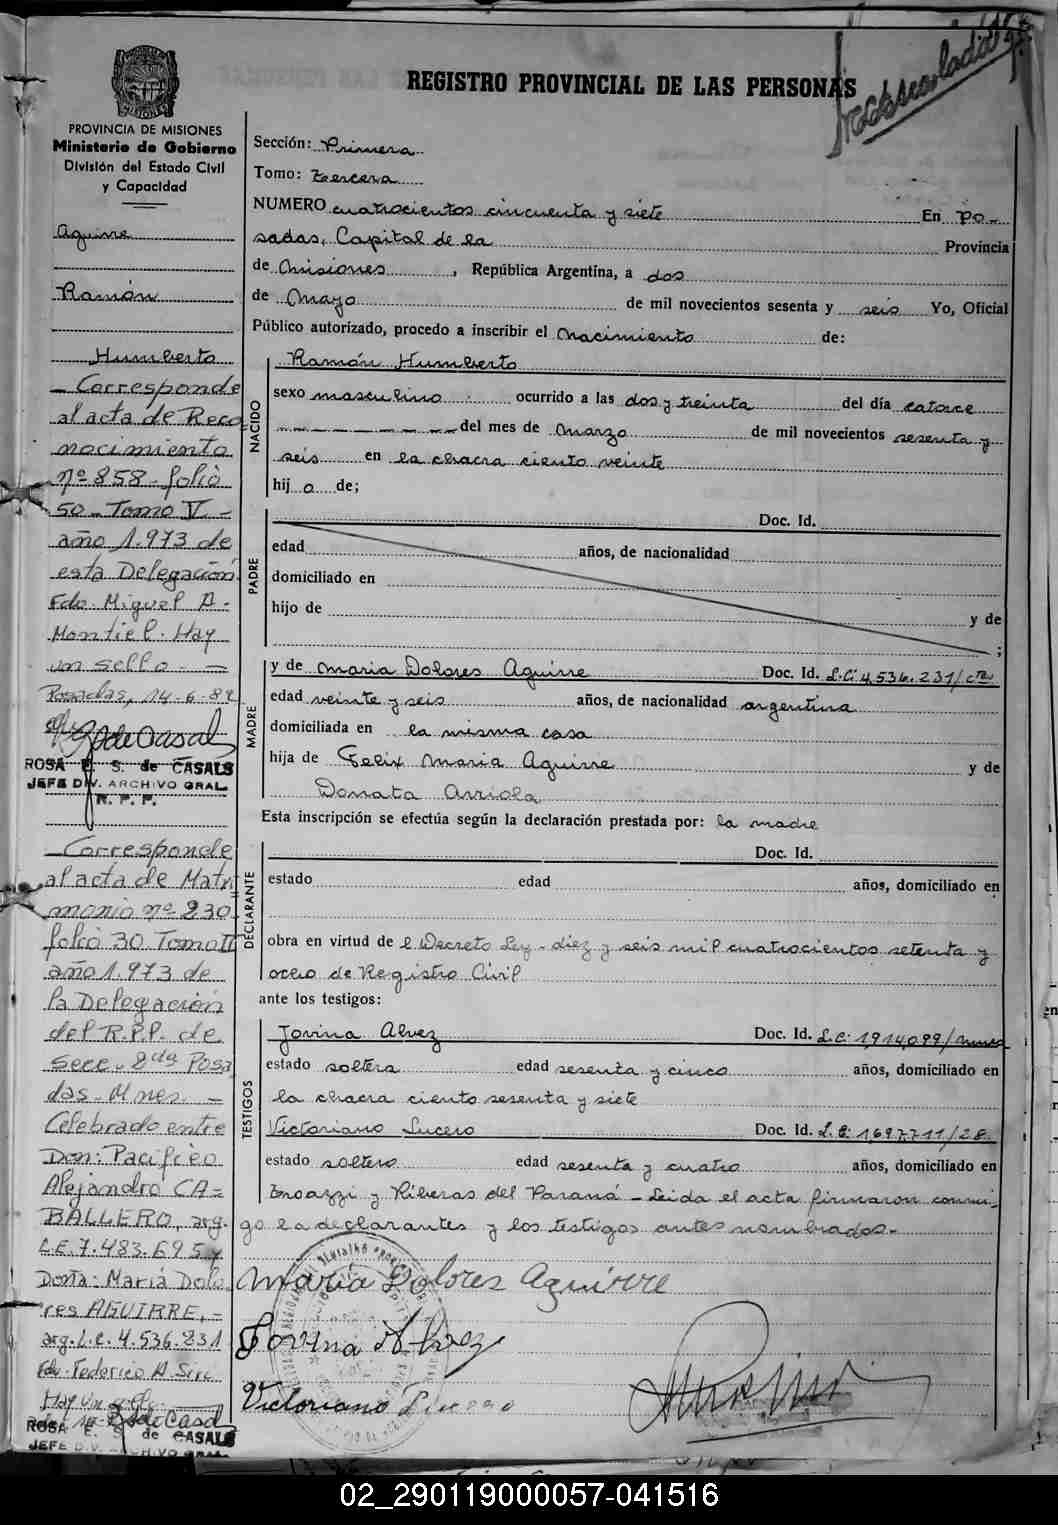 REGISTRO PROVINCIAL DE LAS PERSONAS
PROVINCIA DE MISIONES
Ministerio de Gobierno
División del Estado Civil
y Capacidad
Aguirre
Ramón
Humberto
- Corresponde
al acta de Reco
nocimiento
nº 858 - folio
50 - Tomo V -
año 1.973 de
esta Delegación
Fdo. Miguel A.
Montiel. Hay
un sello. -
Posadas, 14-6-82
ROSA E. S. de CASALS
JEFE DIV. ARCHIVO GRAL.
R. P. P.
Corresponde
al acta de Matri
monio nº 230
folio 30 Tomo II
año 1.973 de
la Delegación
del R.P.P. de
secc. 8da Posa
das - Mnes. -
Celebrado entre
Don: Pacifico
Alejandro CA-
BALLERO, arg.
L.E. 7.483.695 y
Doña: María Dolo
res AGUIRRE, -
arg. L.C. 4.536.231
Fdo. Federico A.
Hay un sello
ROSA E. S. de CASALS
JEFE DIV. ARCHIVO GRAL.
Sección: Primera
Tomo: Tercera
NUMERO cuatrocientos cincuenta y siete En Po-
sadas, Capital de la Provincia
de Misiones, República Argentina, a dos
de Mayo de mil novecientos sesenta y seis Yo, Oficial
Público autorizado, procedo a inscribir el Nacimiento de:
NACIDO
Ramón Humberto
sexo masculino ocurrido a las dos y treinta del día catorce
del mes de Marzo de mil novecientos sesenta y
seis en la chacra ciento veinte
hij o de;
PADRE
Doc. Id.
edad años, de nacionalidad
domiciliado en
hijo de y de
;
MADRE
y de Maria Dolores Aguirre Doc. Id. L.C. 4.536.231/
edad veinte y seis años, de nacionalidad argentina
domiciliada en la misma casa
hija de Felix Maria Aguirre y de
Donata Arriola
Esta inscripción se efectúa según la declaración prestada por: la madre
DECLARANTE
Doc. Id.
estado edad años, domiciliado en
obra en virtud de l Decreto Ley - diez y seis mil cuatrocientos setenta y
ocho de Registro Civil
ante los testigos:
TESTIGOS
Jovina Alvez Doc. Id. L.C. 1,914,099/
estado soltera edad sesenta y cinco años, domiciliado en
la chacra ciento sesenta y siete
Victoriano Lucero Doc. Id. L.E. 1,697.711/28
estado soltero edad sesenta y cuatro años, domiciliado en
y Riberas del Paraná - Leida el acta firmaron conmi-
go la declarantes y los testigos antes nombrados.-
María Dolores Aguirre
Jovina Alvez
Victoriano Lucero
02_290119000057-041516